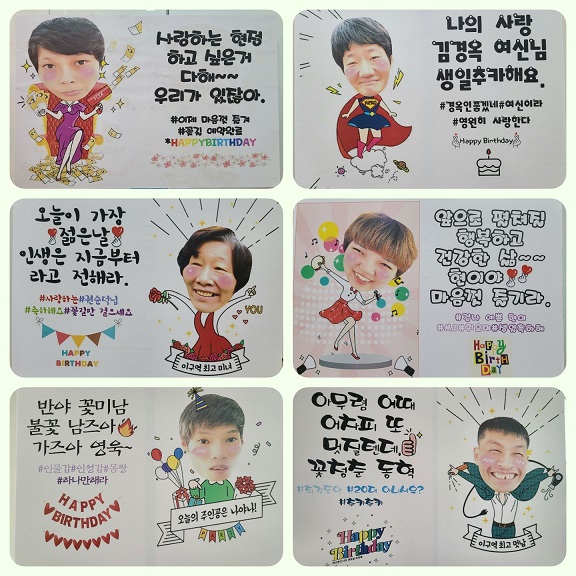 사랑하는 현정
하고 싶은거
다해~~
우리가 있잖아.
#이제 마음껏 즐겨
#꽃길 예약완료
*HAPPYBIRTHDAY
나의 사랑
김경옥 여신님
생일추카해요.
#경옥인줄겠네#여신이라
#영원히 사랑한다
Happy Birthday
오늘이 가장
젊은날
인생은 지금부터
라고 전해라.
#사랑하는#권순덕님
#축하해요#꽃길만 걸으세요
HAPPY
BIRTHDAY
YOU
이구역 최고 미녀
앞으로 펼쳐질
행복하고
건강한 삶~~
현이야
마음껏 즐겨라.
Happy
Birth
Day
반야 꽃미남
불꽃 남즈아
가즈아 영욱~
#인물갑#인성갑#몸짱
#라나만레라
HAPPY
BIRTHDAY
오늘의 주인공은 나야나!
아무렴 어때
어차피 또
멋질텐데,
꽃청춘 동혁
#20대 아니세요?
#추카추카
Happy
Birthday
이구역 최고 멋남